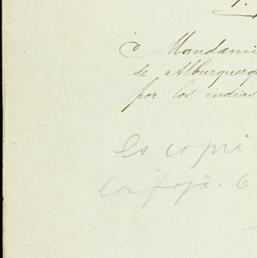 Mandami
de Alburquerq
por los indios
es copia
la foja. 6